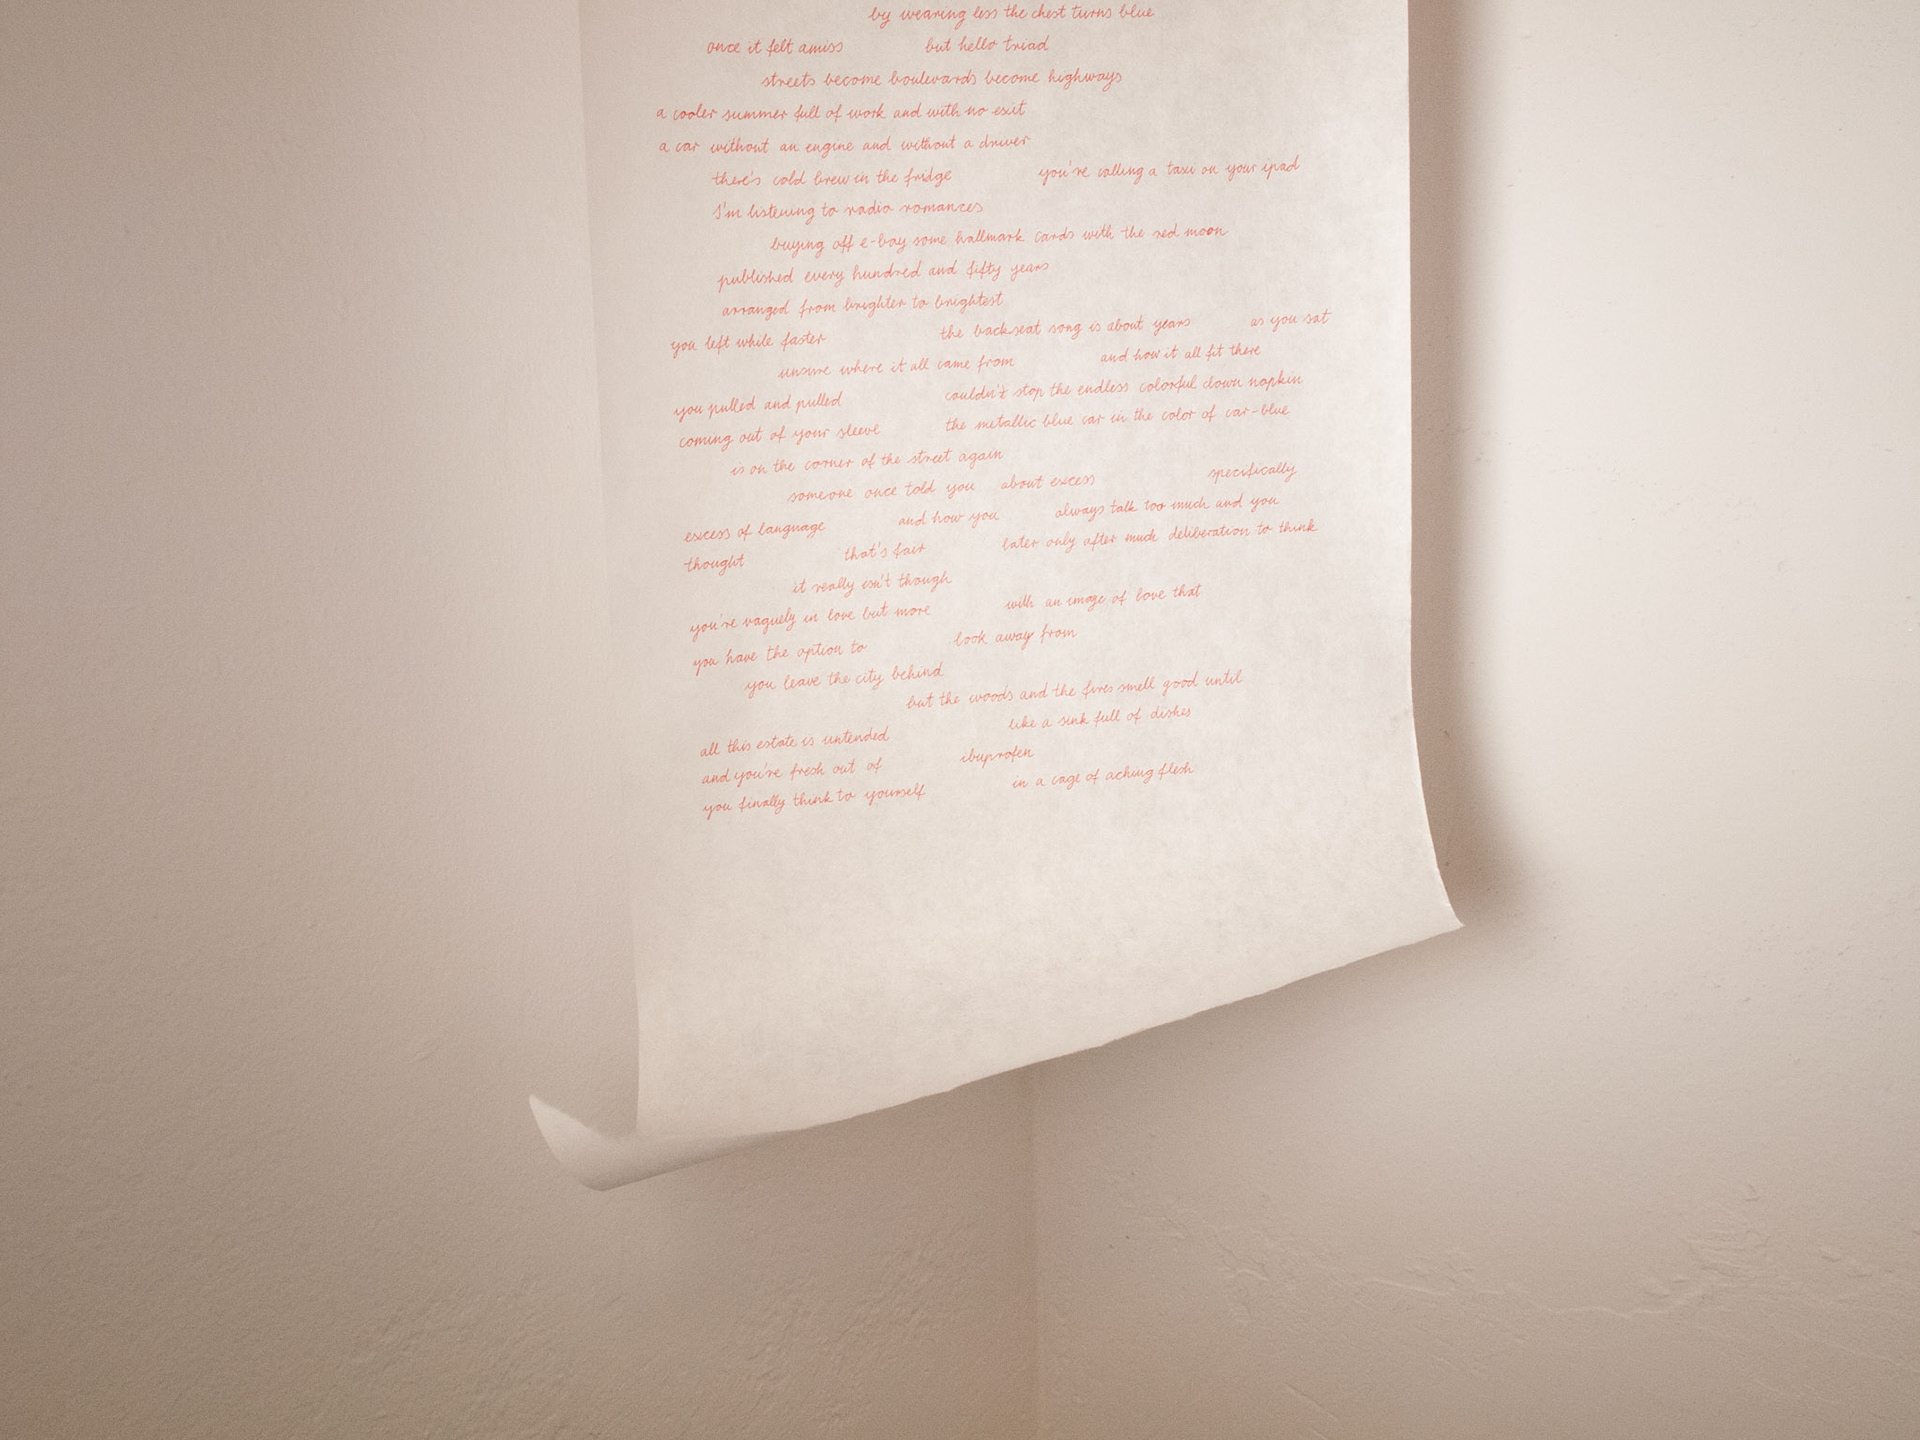 by wearing less the chest turns blue
once it felt amiss but hello triad
streets become boulevards become highways
a cooler summer full of work and with no exit
a car without an engine and without a driver
there's cold brew in the fridge you're calling a taxi on your ipad
I'm listening to radio romances
buying off e-bay some hallmark cards with the red moon
published every hundred and fifty years
arranged from brighter to brightest
you left while faster the backseat song is about years as you sat
unsure where it all came from and how it all fit there
you pulled and pulled couldn't stop the endless colorful clown napkin
coming out of your sleeve the metallic blue car in the color of car-blue
is on the corner of the street again
someone once told you about excess specifically
excess of language and how you always talk too much and you
thought that's fair later only after much deliberation to think
it really isn't though
you're vaguely in love but more with an image of love that
you have the option to look away from
you leave the city behind
but the woods and the fires smell good until
all this estate is untended like a sink full of dishes
and you're fresh out of ibuprofen
you finally think to yourself in a cage of aching flesh